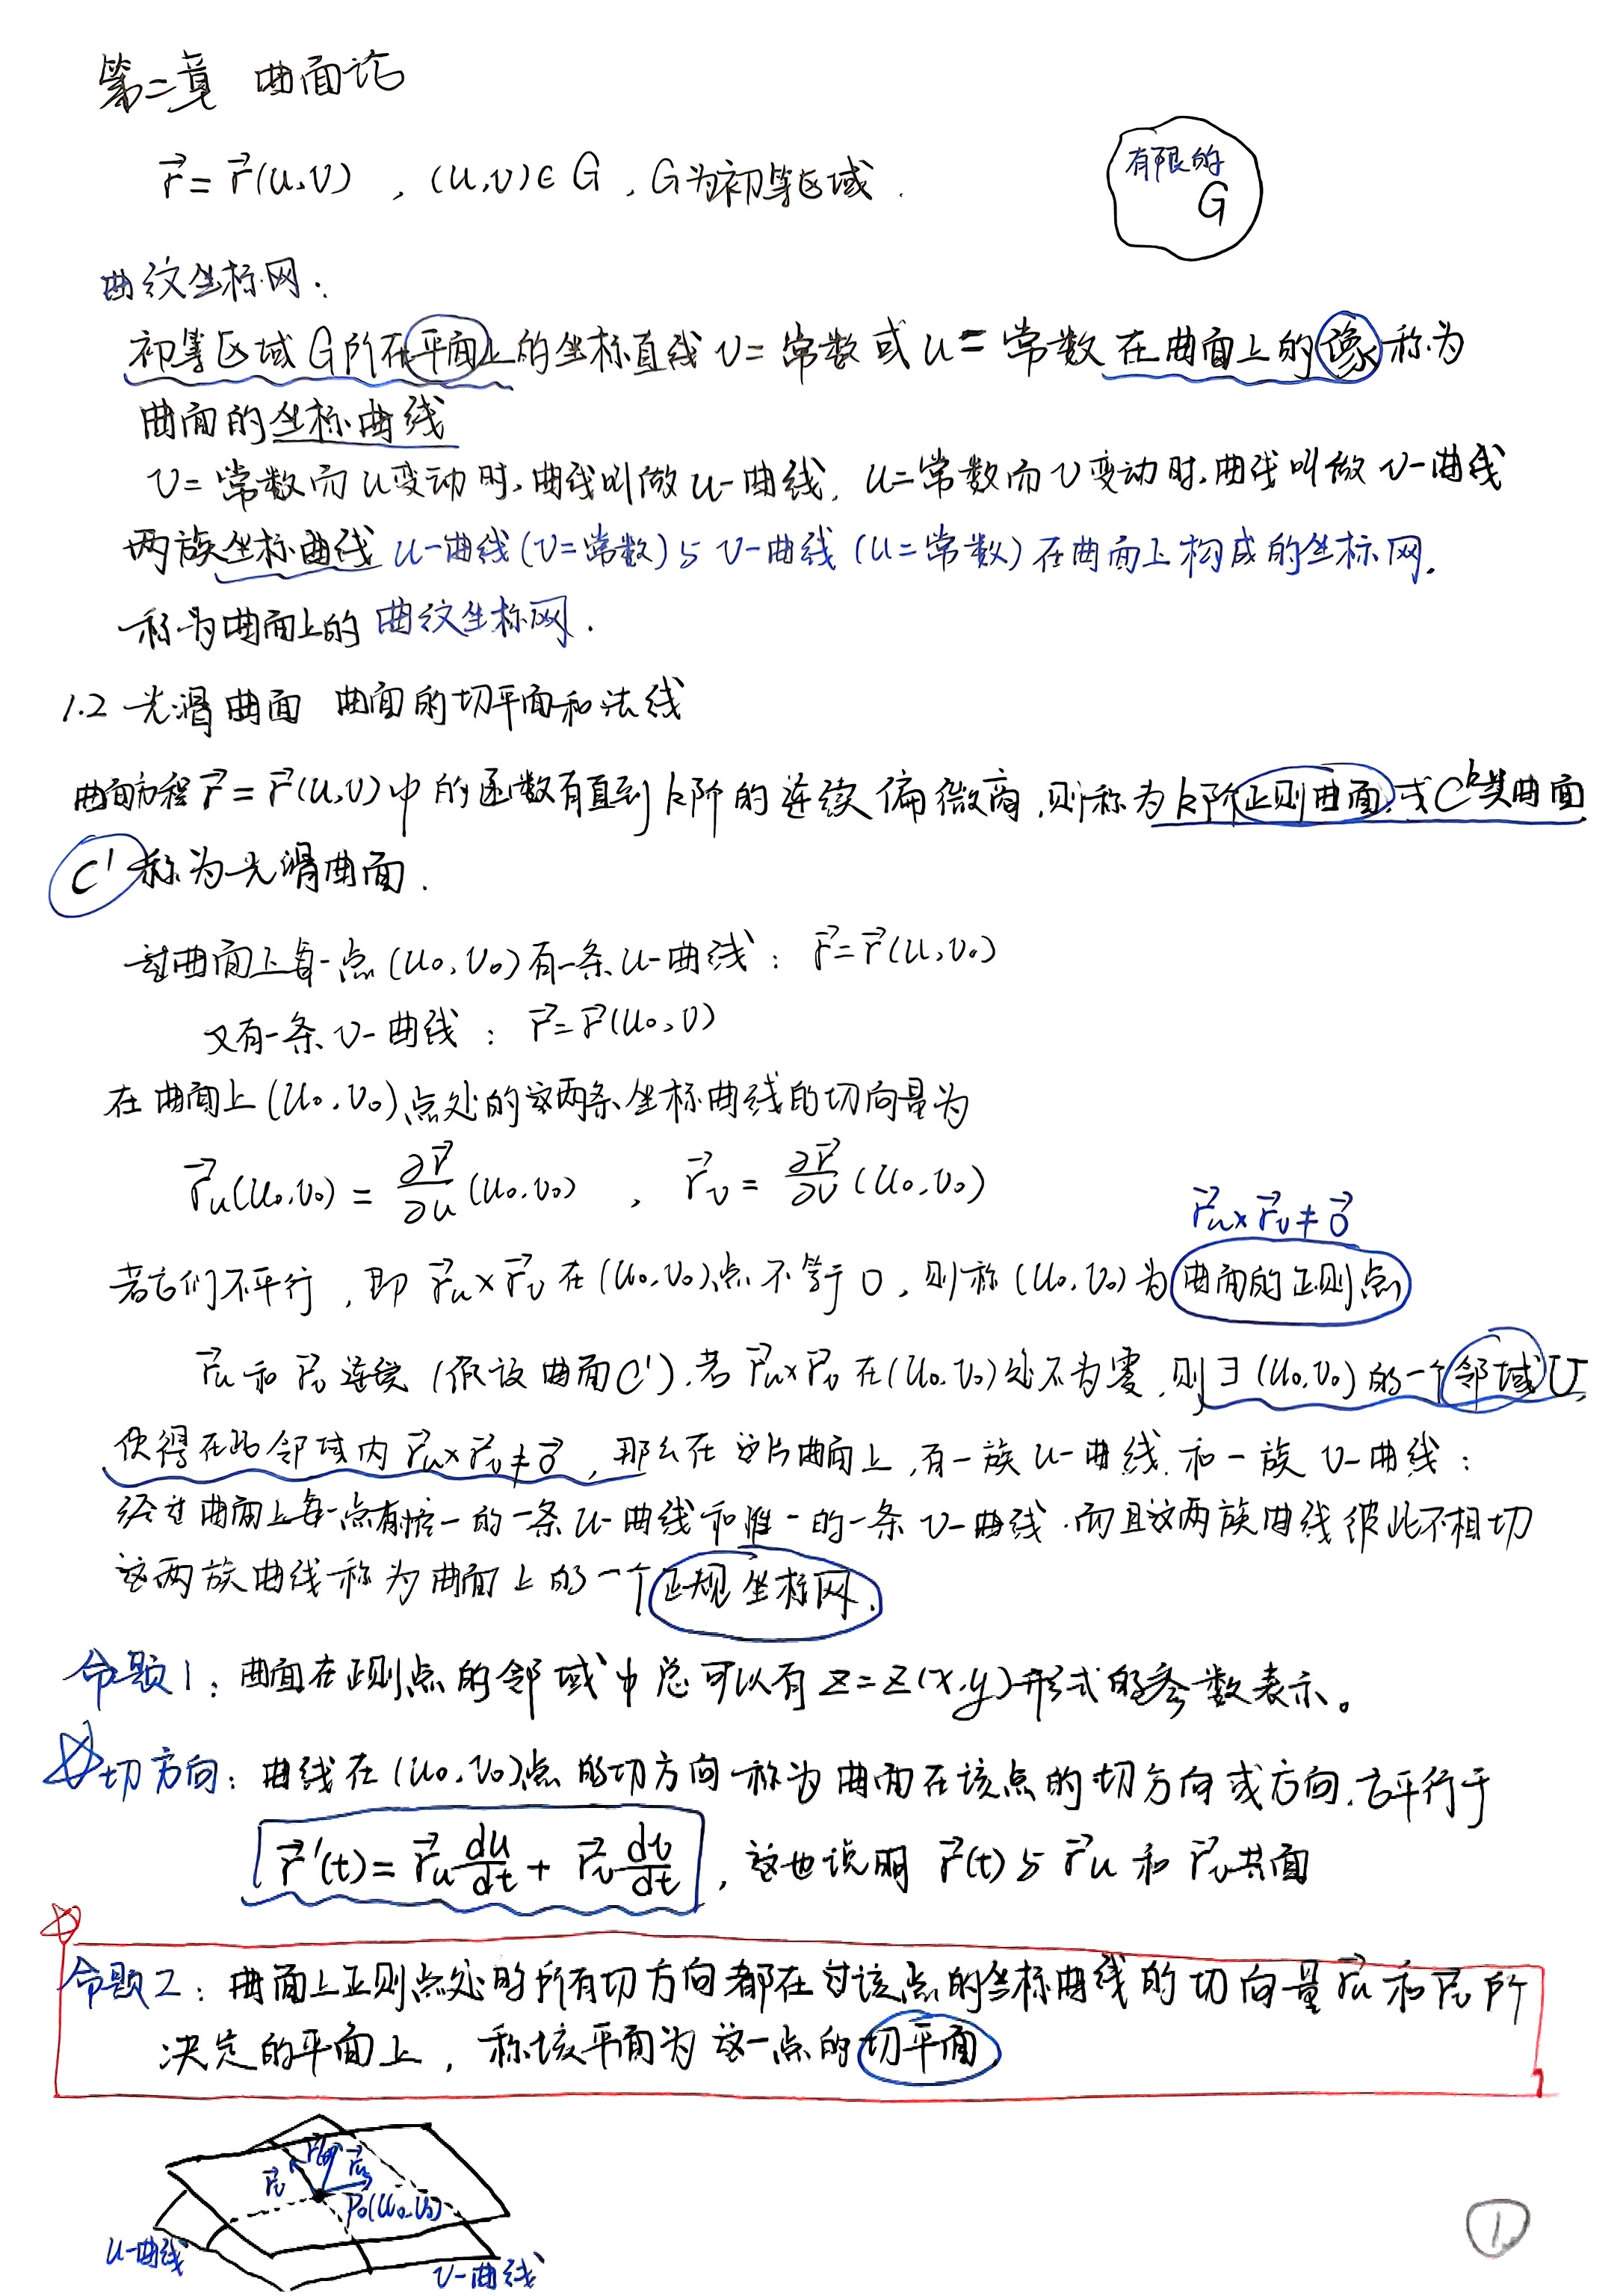 第二章 曲面论
r⃗ = r⃗(u,v) , (u,v)∈G , G为初等区域.
有限的
G
曲纹坐标网:
初等区域G所在平面上的坐标直线 v=常数 或 u=常数 在曲面上的像称为
曲面的坐标曲线
v=常数而u变动时,曲线叫做u-曲线, u=常数而v变动时,曲线叫做v-曲线
两族坐标曲线 u-曲线(v=常数)与v-曲线(u=常数)在曲面上构成的坐标网,
称为曲面上的曲纹坐标网.
1.2 光滑曲面 曲面的切平面和法线
曲面方程 r⃗=r⃗(u,v)中的函数有直到k阶的连续偏微商,则称为k阶正则曲面,或C^k类曲面
C' 称为光滑曲面.
过曲面上每一点(u₀,v₀)有一条u-曲线: r⃗=r⃗(u,v₀)
又有一条v-曲线: r⃗=r⃗(u₀,v)
在曲面上(u₀,v₀)点处的这两条坐标曲线的切向量为
r⃗ᵤ(u₀,v₀) = ∂r⃗/∂u (u₀,v₀) , r⃗ᵥ = ∂r⃗/∂v (u₀,v₀)
r⃗ᵤ×r⃗ᵥ≠0⃗
若它们不平行,即 r⃗ᵤ×r⃗ᵥ 在(u₀,v₀)点不等于0,则称(u₀,v₀)为曲面的正则点
r⃗ᵤ和r⃗ᵥ连续(假设曲面C'),若 r⃗ᵤ×r⃗ᵥ在(u₀,v₀)处不为零,则∃(u₀,v₀)的一个邻域U,
使得在此邻域内 r⃗ᵤ×r⃗ᵥ≠0⃗, 那么在这片曲面上,有一族u-曲线和一族v-曲线:
经过曲面上每一点有惟一的一条u-曲线和惟一的一条v-曲线.而且这两族曲线彼此不相切
这两族曲线称为曲面上的一个正规坐标网.
命题1: 曲面在正则点的邻域中总可以有z=z(x,y)形式的参数表示。
切方向: 曲线在(u₀,v₀)点的切方向称为曲面在该点的切方向或方向,它平行于
r⃗'(t)=r⃗ᵤ du/dt + r⃗ᵥ dv/dt , 这也说明 r⃗(t)与r⃗ᵤ和r⃗ᵥ共面
命题2: 曲面上正则点处的所有切方向都在过该点的坐标曲线的切向量r⃗ᵤ和r⃗ᵥ所
决定的平面上, 称该平面为这一点的切平面
r⃗ᵥ
r⃗ᵤ
P₀(u₀,v₀)
u-曲线
v-曲线
1